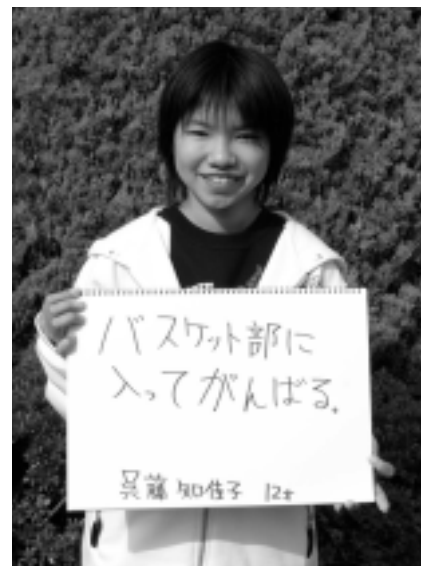 バスケット部に
入ってがんばる。
呉藤 知佳子 12才